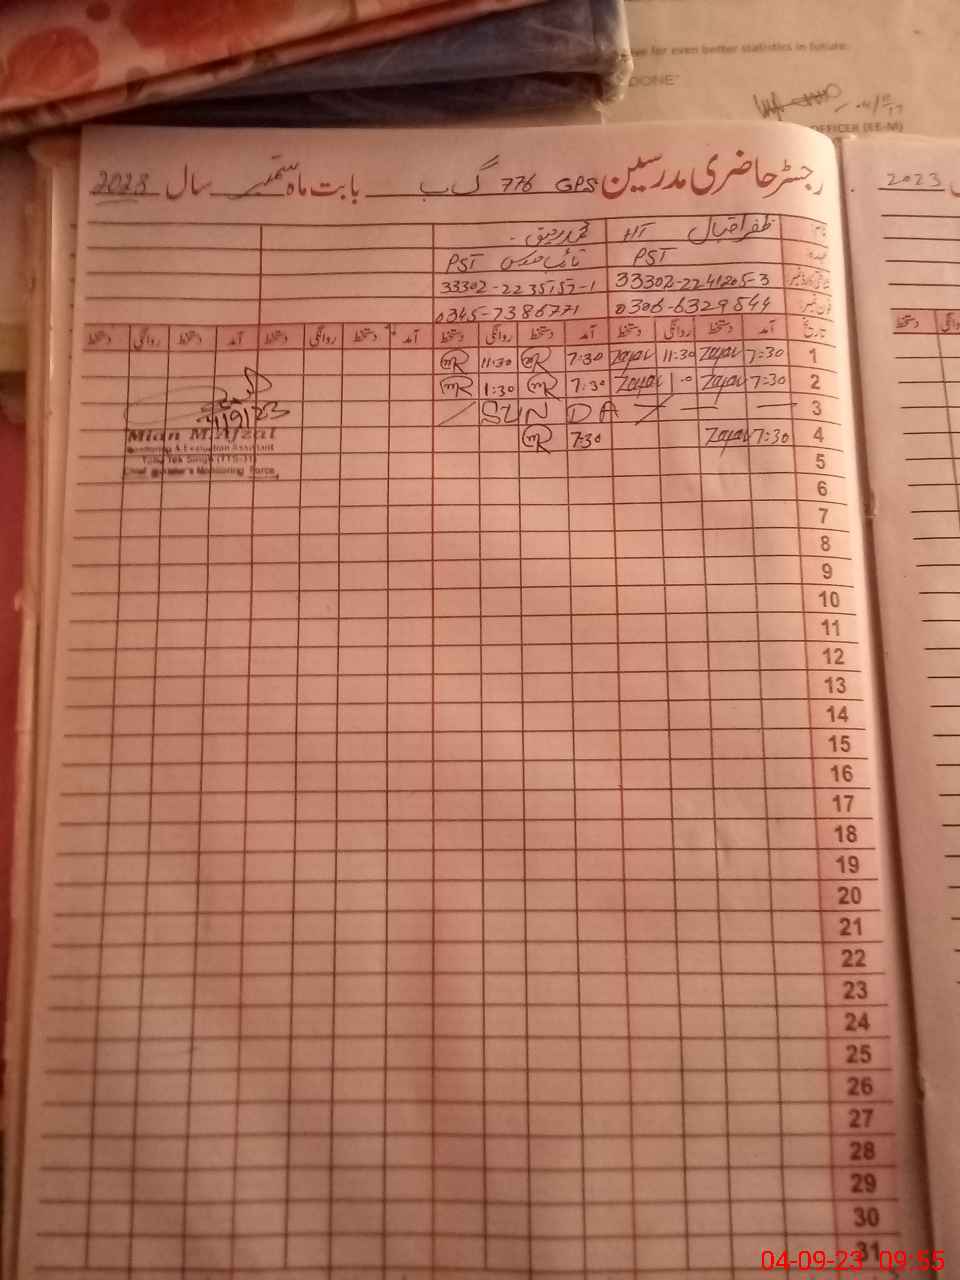 for even better statistics in future.
DONE"
OFFICER (EE-M)
رجسٹر حاضری مدرسین GPS 776 گ ب بابت ماہ ستمبر سال 2023
2023
ظفر اقبال HT محمد رفیق
PST PST
33302-2241205-3 33302-2235157-1
0306-6329544 0345-7386771
تاریخ آمد دستخط روانگی دستخط آمد دستخط روانگی دستخط آمد دستخط روانگی دستخط آمد دستخط روانگی دستخط
دستخط
1 7:30 Zafar 11:30 Zafar 7:30 mR 11:30 mR
2 7:30 Zafar Zafar 7:30 mR 1:30 mR
3 SUN DA
4 7:30 Zafar 7:30 mR
4/9/23
Mian M.Afzal
Monitoring & Evaluation Assistant
Toba Tek Singh (TTS-31)
Chief Minister's Monitoring Force
5
6
7
8
9
10
11
12
13
14
15
16
17
18
19
20
21
22
23
24
25
26
27
28
29
30
31
04-09-23 09:55